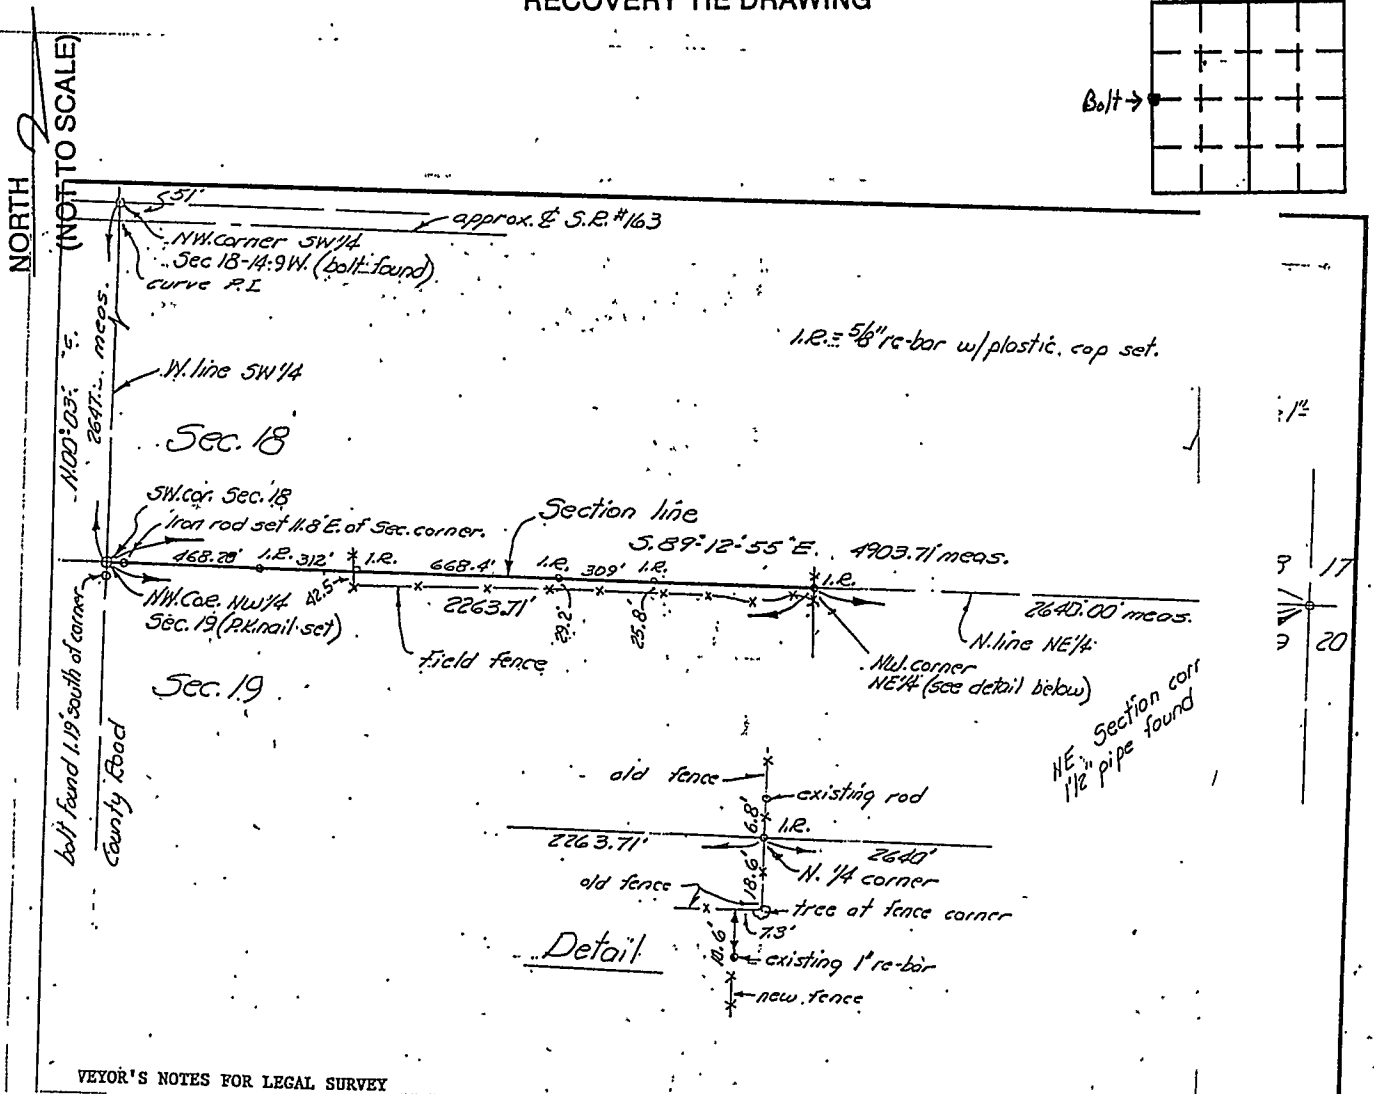 RECOVERY TIE DRAWING
NORTH
(NOT TO SCALE)
Bolt
51'
approx. ℄ S.R. #163
NW. corner SW 1/4
Sec 18-14-9W. (bolt found)
curve P.I.
I.R. = 5/8" re-bar w/plastic cap set.
2647 meas.
W. line SW 1/4
Sec. 18
SW. cor. Sec. 18
Iron rod set 11.8' E. of Sec. corner.
Section line
S. 89°-12'-55" E. 4903.71' meas.
468.28' I.R. 312' I.R. 668.4' I.R. 309' I.R.
I.R.
42.5'
NW. Cor. NW 1/4
Sec. 19 (P.K. nail set)
2263.71'
29.2'
25.8'
2640.00' meas.
N. line NE 1/4
17
20
Field fence
NW. corner
NE 1/4 (see detail below)
Sec. 19
bolt found 1.19' south of corner
County Road
NE. Section corr
1 1/2" pipe found
old fence
existing rod
6.8'
I.R.
2263.71'
2640'
N. 1/4 corner
18.6'
old fence
tree at fence corner
7.3'
10.6'
Detail
existing 1" re-bar
new fence
VEYOR'S NOTES FOR LEGAL SURVEY